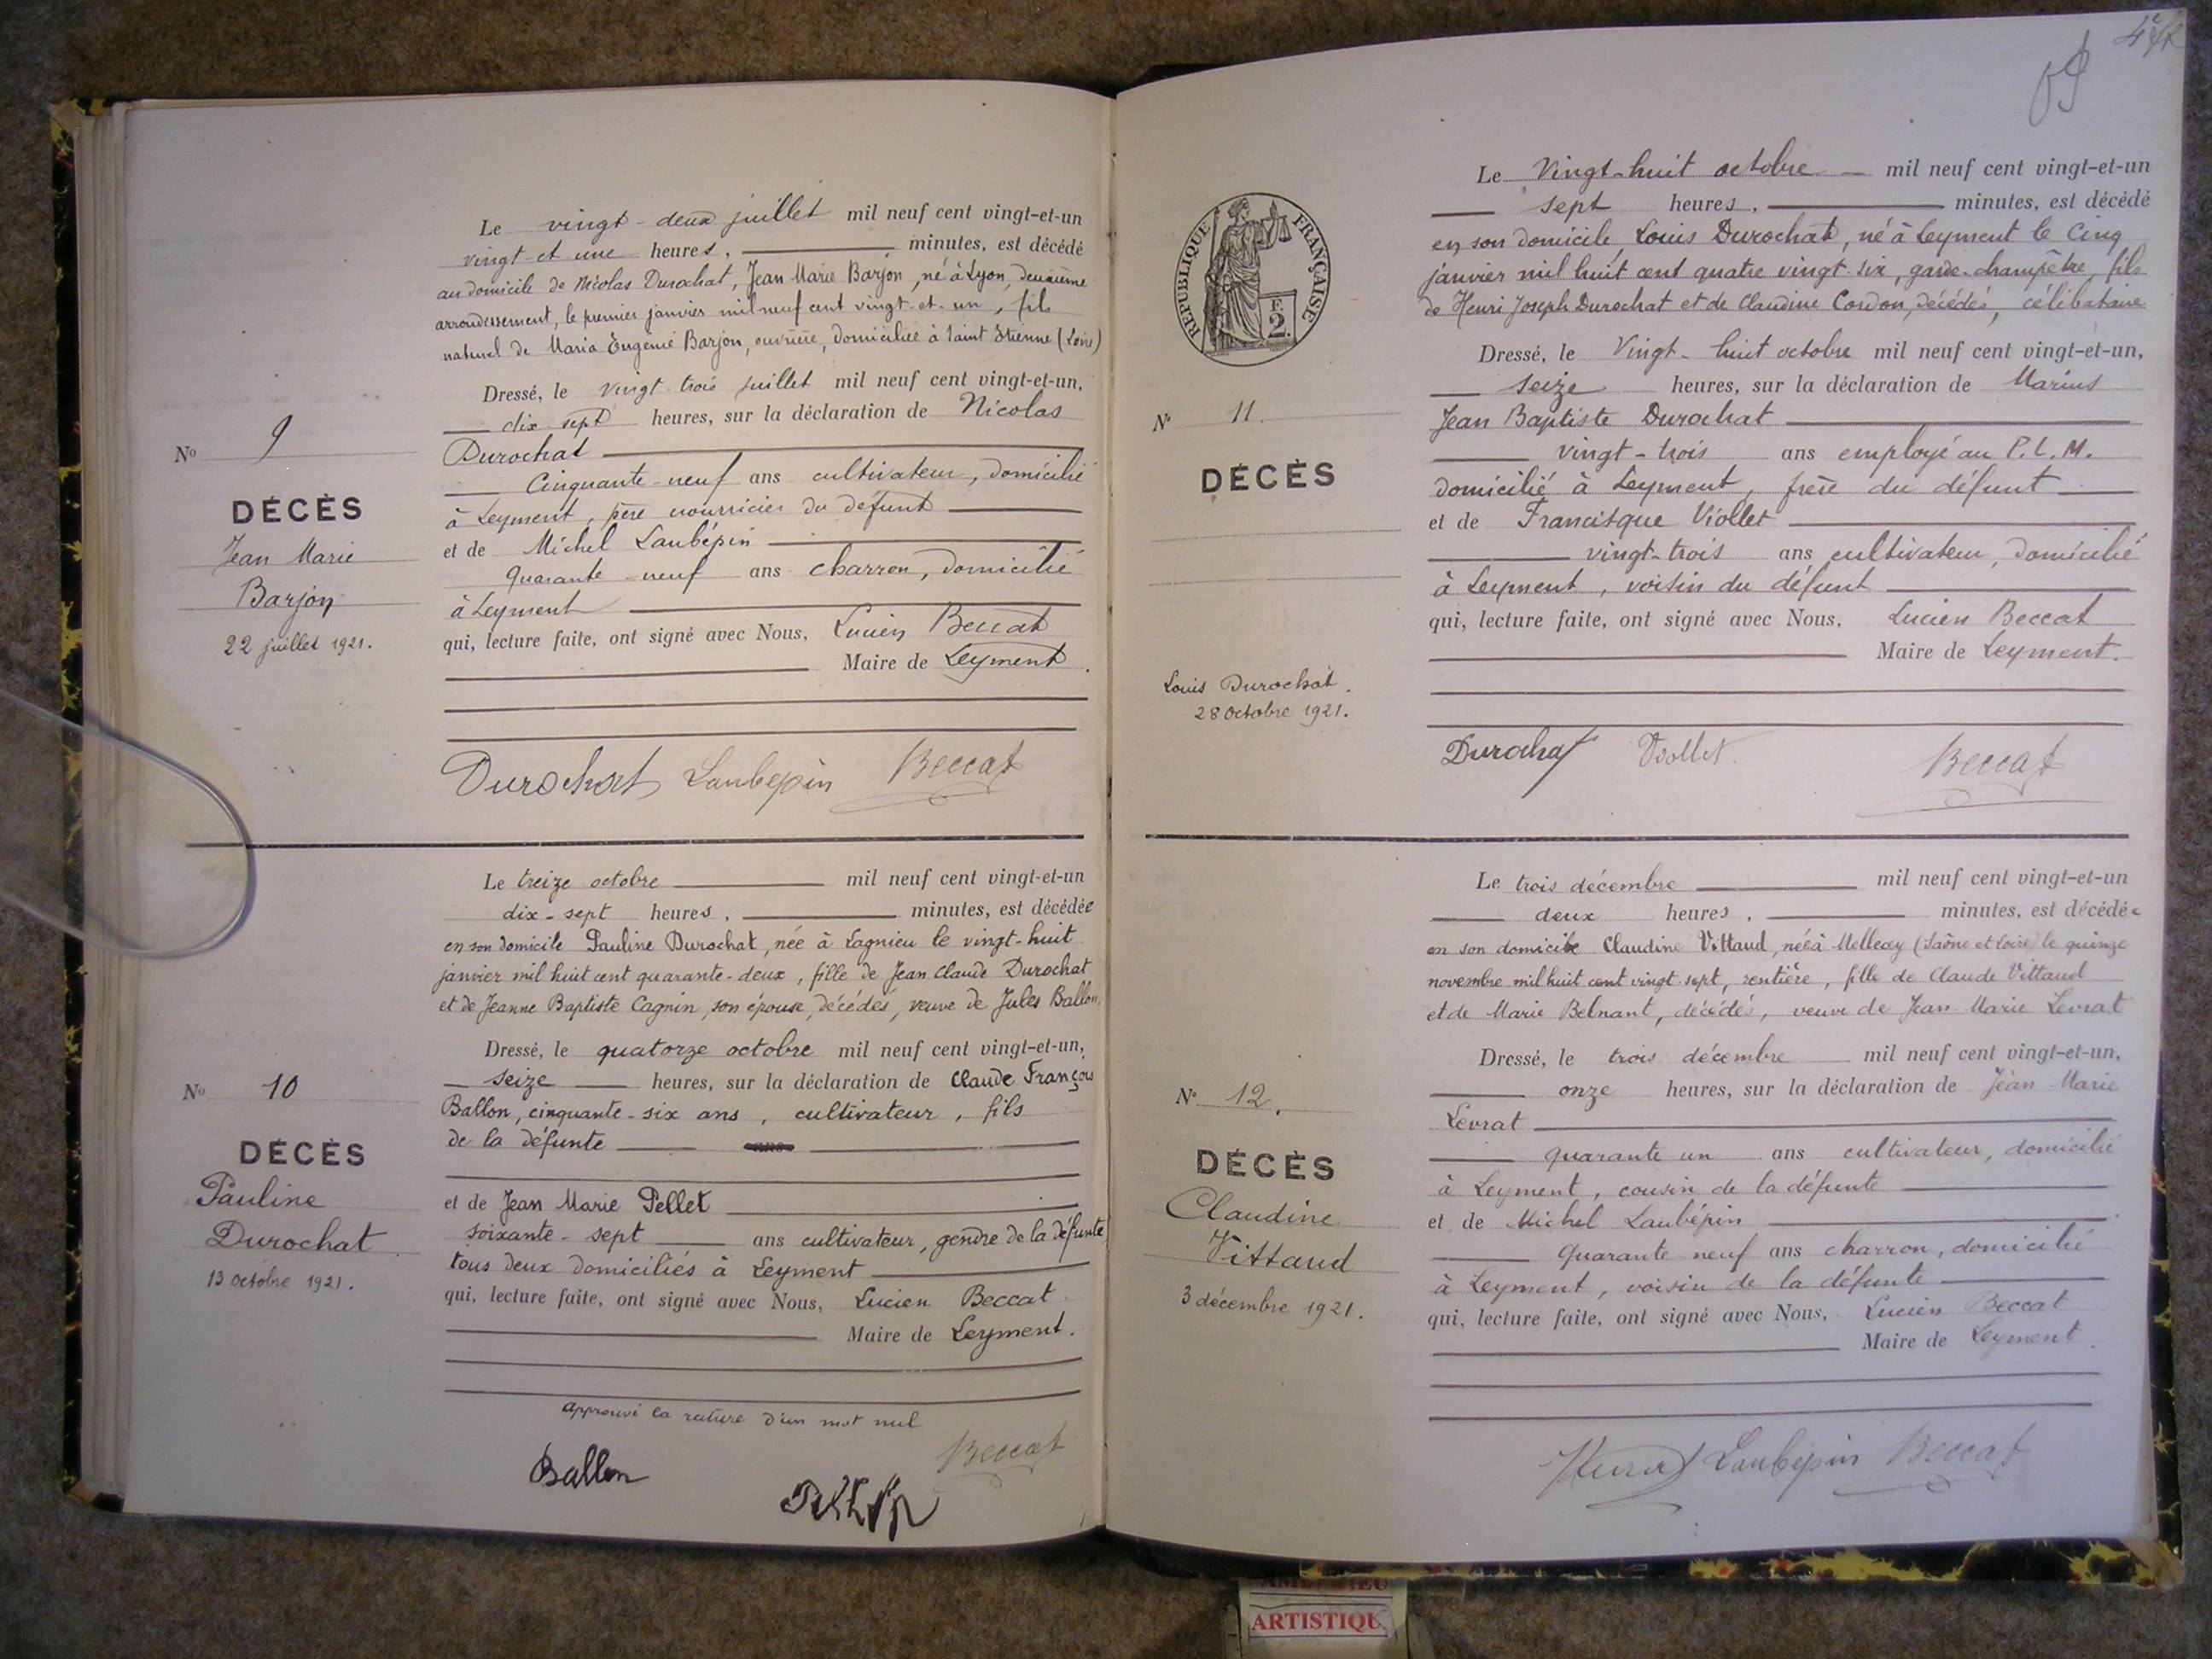 Le vingt-deux juillet mil neuf cent vingt-et-un
vingt et une heures, minutes, est décédé
au domicile de Nicolas Durochat, Jean Marie Barjon, né à Lyon, deuxième
arrondissement, le premier janvier mil neuf cent vingt-et-un, fils
naturel de Maria Eugénie Barjon, ouvrière, domiciliée à Saint Etienne (Loire)
Dressé, le vingt trois juillet mil neuf cent vingt-et-un,
dix sept heures, sur la déclaration de Nicolas
Durochat
Cinquante-neuf ans cultivateur, domicilié
à Leyment, père nourricier du défunt
et de Michel Laubépin
quarante-neuf ans charron, domicilié
à Leyment
qui, lecture faite, ont signé avec Nous, Lucien Beccat
Maire de Leyment.
No 9
DÉCÈS
Jean Marie
Barjon
22 juillet 1921.
Durochat Laubepin Beccat
Le treize octobre mil neuf cent vingt-et-un
dix-sept heures, minutes, est décédée
en son domicile Pauline Durochat, née à Lagnieu le vingt-huit
janvier mil huit cent quarante-deux, fille de Jean Claude Durochat
et de Jeanne Baptiste Cagnin, son épouse, décédés, veuve de Jules Ballon.
Dressé, le quatorze octobre mil neuf cent vingt-et-un,
seize heures, sur la déclaration de Claude François
Ballon, cinquante-six ans, cultivateur, fils
de la défunte
et de Jean Marie Pellet
soixante-sept ans cultivateur, gendre de la défunte
tous deux domiciliés à Leyment
qui, lecture faite, ont signé avec Nous, Lucien Beccat
Maire de Leyment.
No 10
DÉCÈS
Pauline
Durochat
13 octobre 1921.
approuvé la rature d'un mot nul
Ballon Beccat
4e
RÉPUBLIQUE FRANÇAISE
F.
2.
Le Vingt-huit octobre mil neuf cent vingt-et-un
sept heures, minutes, est décédé
en son domicile, Louis Durochat, né à Leyment le Cinq
janvier mil huit cent quatre vingt-six, garde-champêtre, fils
de Henri Joseph Durochat et de Claudine Cordon, décédés, célibataire
Dressé, le Vingt-huit octobre mil neuf cent vingt-et-un,
seize heures, sur la déclaration de Marius
Jean Baptiste Durochat
vingt-trois ans employé au P.L.M.
domicilié à Leyment, frère du défunt
et de Francisque Viollet
vingt-trois ans cultivateur, domicilié
à Leyment, voisin du défunt
qui, lecture faite, ont signé avec Nous, Lucien Beccat
Maire de Leyment.
No 11.
DÉCÈS
Louis Durochat.
28 Octobre 1921.
Durochat Viollet Beccat
Le trois décembre mil neuf cent vingt-et-un
deux heures, minutes, est décédée
en son domicile Claudine Vittaud, née à Mellecey (Saône et Loire) le quinze
novembre mil huit cent vingt sept, rentière, fille de Claude Vittaud
et de Marie Belnant, décédés, veuve de Jean-Marie Levrat
Dressé, le trois décembre mil neuf cent vingt-et-un,
onze heures, sur la déclaration de Jean-Marie
Levrat
quarante un ans cultivateur, domicilié
à Leyment, cousin de la défunte
et de Michel Laubépin
quarante neuf ans charron, domicilié
à Leyment, voisin de la défunte
qui, lecture faite, ont signé avec Nous, Lucien Beccat
Maire de Leyment.
No 12.
DÉCÈS
Claudine
Vittaud
3 décembre 1921.
Laubepin Beccat
ARTISTIQU